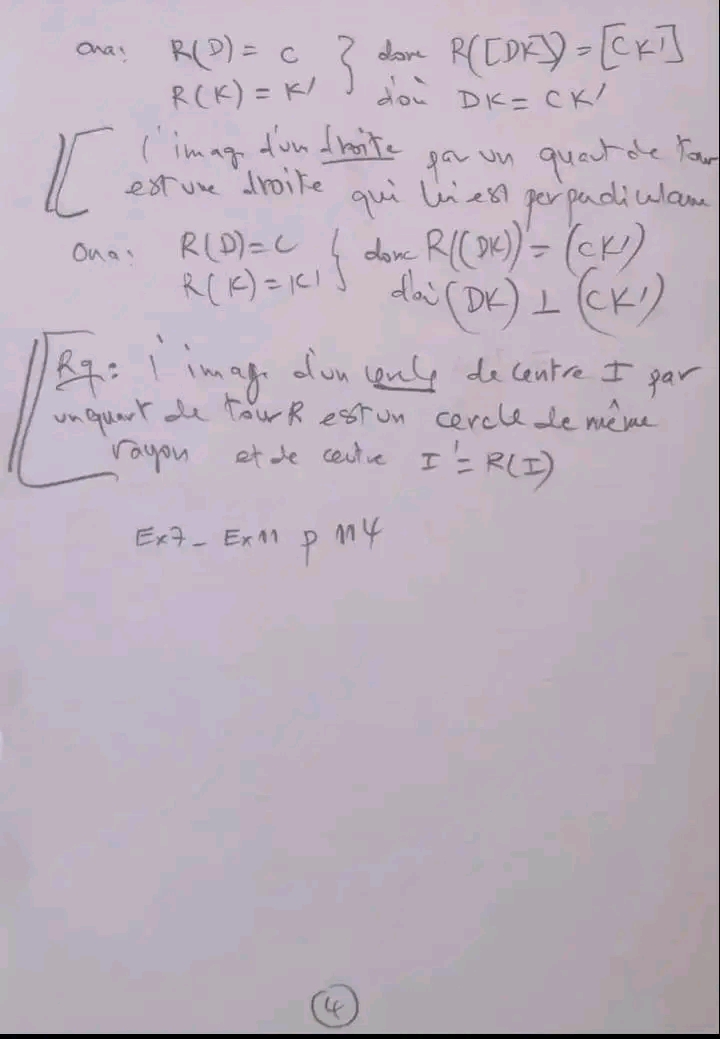 Ona: R(D) = C } donc R([DK]) = [CK']
R(K) = K' } d'où DK = CK'
l'image d'un droite par un quart de tour
est une droite qui lui est perpendiculaire
Ona: R(D) = C } donc R((DK)) = (CK')
R(K) = K' } d'où (DK) ⊥ (CK')
Rq: l'image d'un cercle de centre I par
un quart de tour R est un cercle de même
rayon et de centre I' = R(I)
Ex7 - Ex11 p 114
4